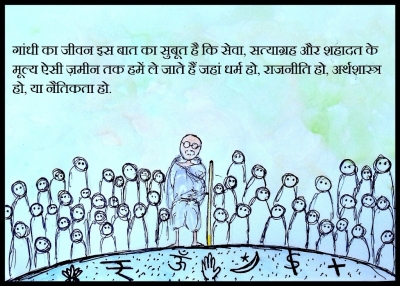 गांधी का जीवन इस बात का सुबूत है कि सेवा, सत्याग्रह और शहादत के
मूल्य ऐसी ज़मीन तक हमें ले जाते हैं जहां धर्म हो, राजनीति हो, अर्थशास्त्र
हो, या नैतिकता हो.
₹ ॐ $ +